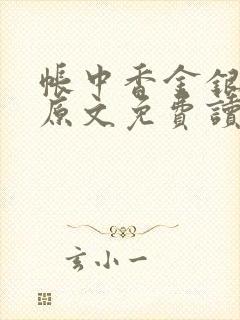 帳中香金銀
原文免費讀
玄小一